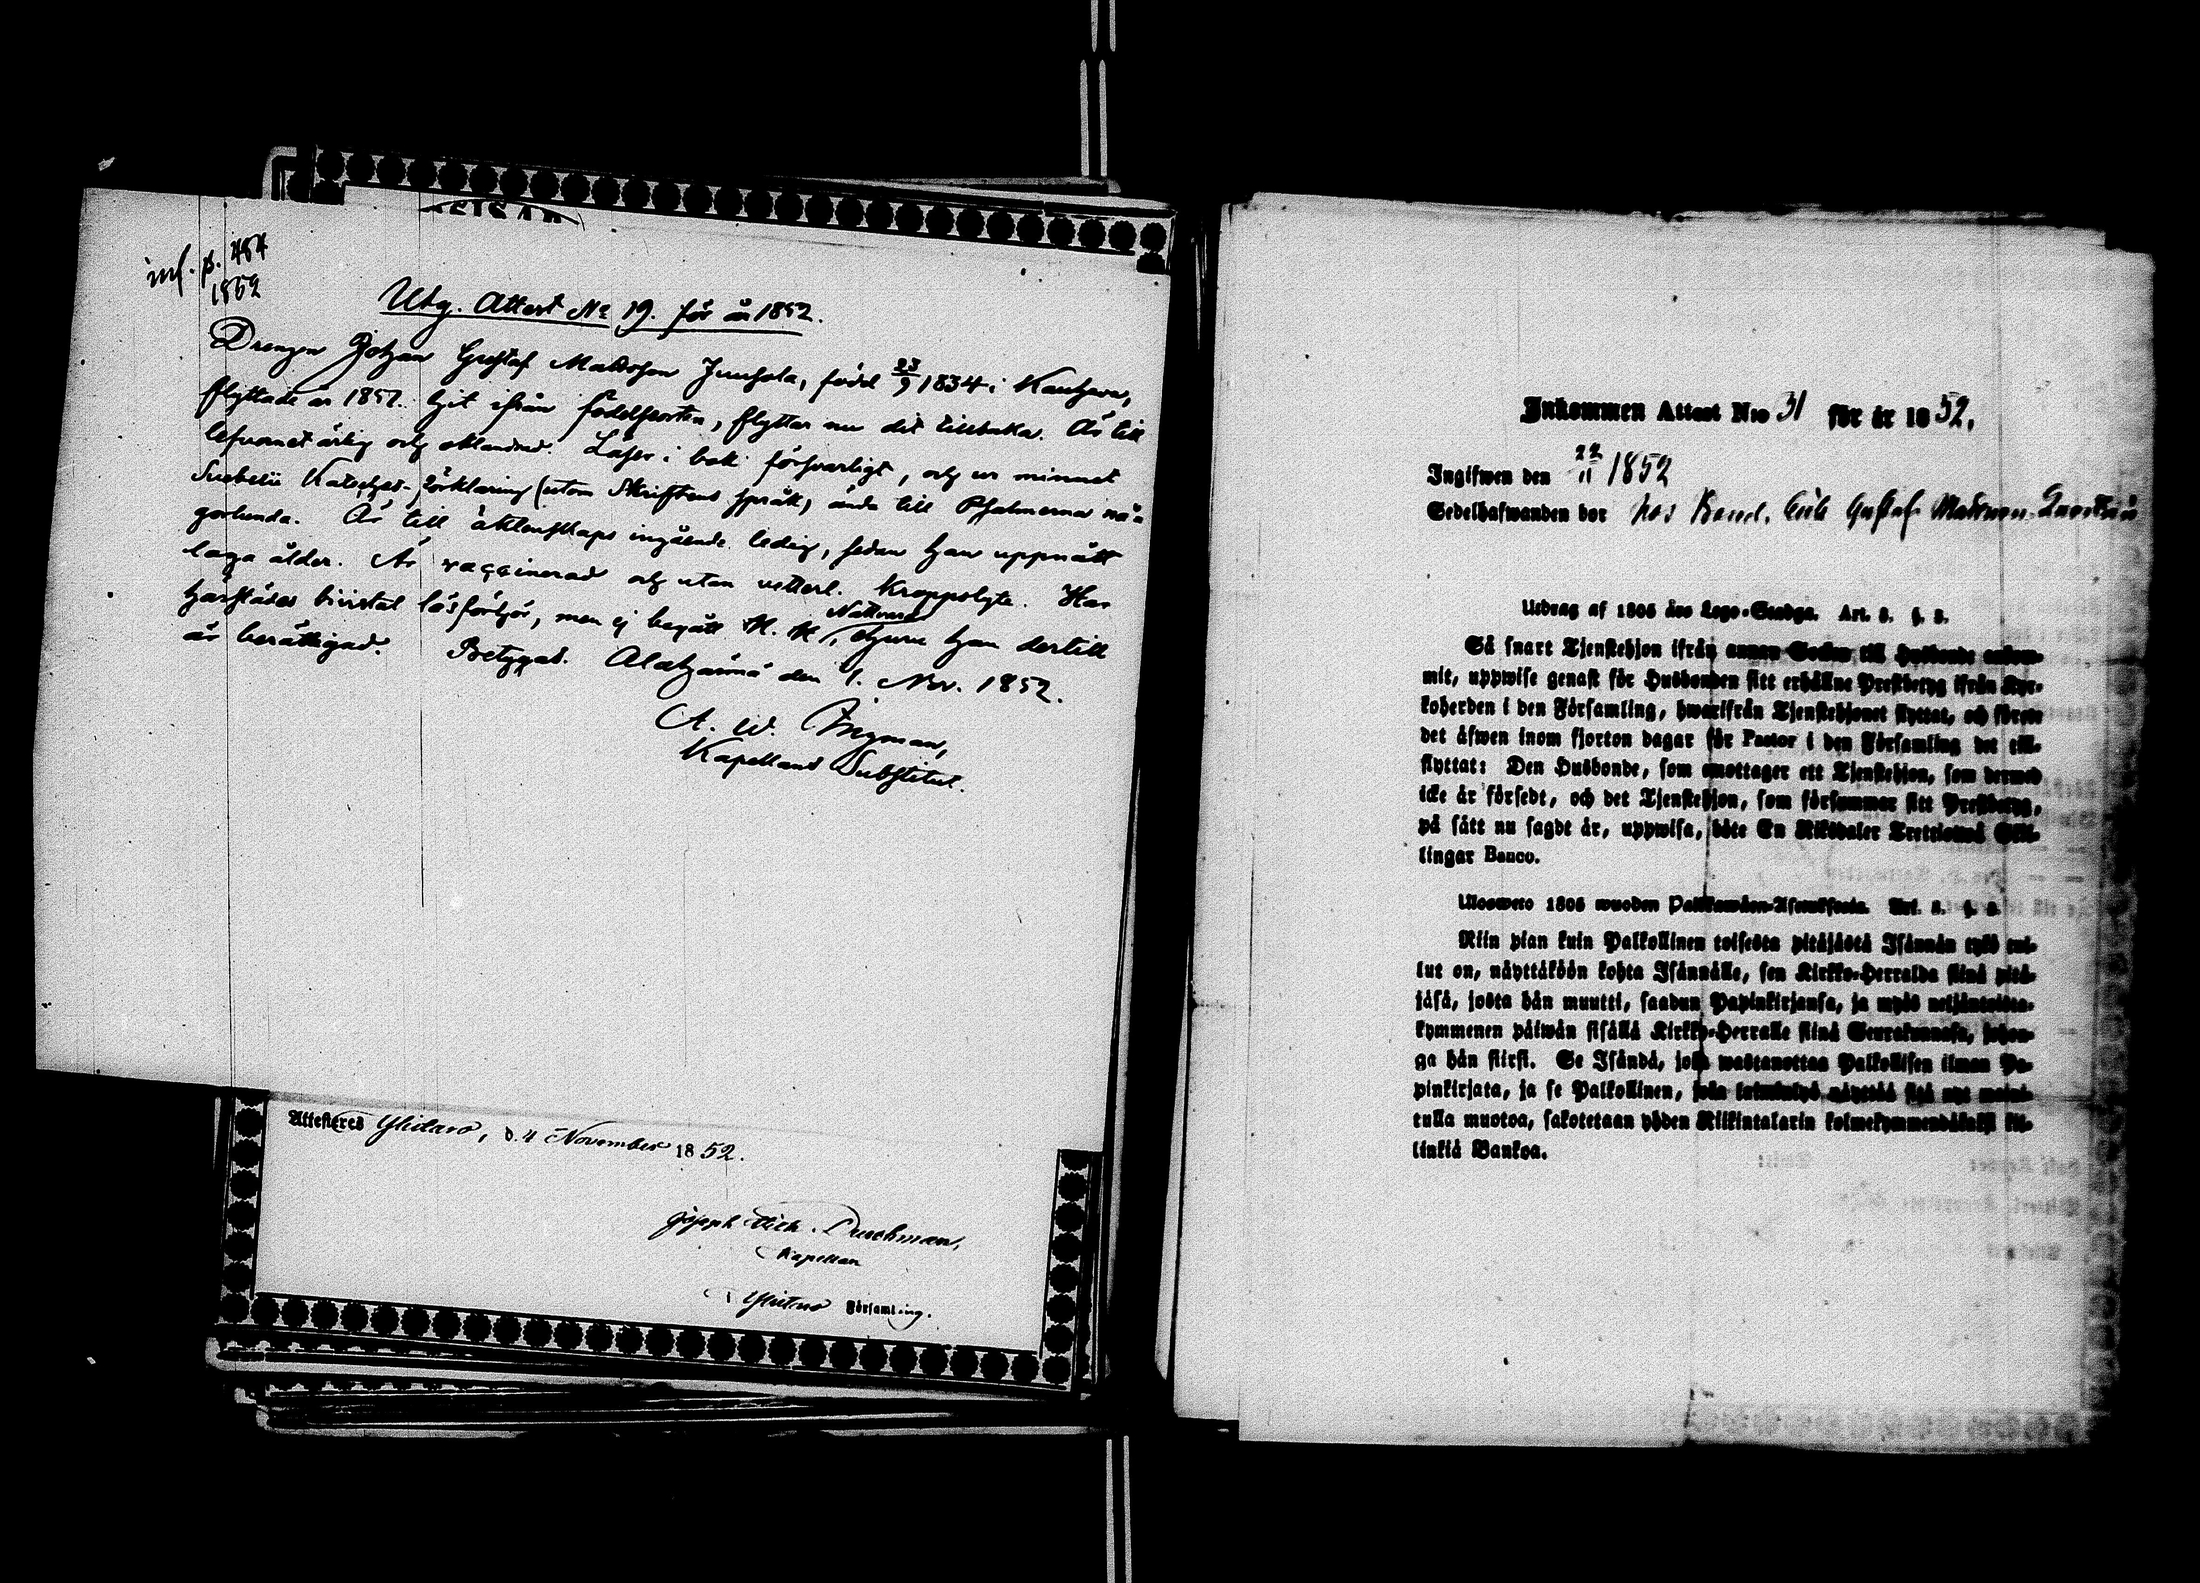 inf. p. 484
1852
Utg. Attest No 19. för år 1852.
Drengen Johan Gustaf Mattsson Junsola, född 23/9 1834 i Kauhava,
flyttade år 1852 hit ifrån födelseorten, flyttar nu dit tillbaka. Är till
lefvernet ärlig och oklandrad. Läser i bok försvarligt, och ur minnet
Svebelii Kateches-förklaring (utom Skriftens språk) ända till Psalmerna nå-
gorlunda. Är till äktenskaps ingående ledig, sedan han uppnått
laga ålder. Är vaccinerad och utan vetterl. kroppslyte. Har
härstädes bivistat läsförhör, men ej begått H. H. Nattvard, ehuru han dertill
är berättigad. Betygas. Alahärmä den 1. Nov. 1852.
A. W. Ingman,
Kapellans Substitut.
Attesteras Ylistaro, d. 4 November 1852.
Joseph Mich. Duchman,
Kapellan
i Ylistaro Församling.
Inkommen Attest N:o 31 för år 1852.
Ingifwen den 22/11 1852
Sedelhafwanden bor hos Bond. Gustaf Mattsson
Utdrag af 1805 års Lego-Stadga. Art. 3. §. 3.
Så snart Tjenstehjon ifrån annan Socken till Husbonde ankom-
mit, uppwise genast för Husbonden sitt erhållne Prestbetyg ifrån Kyr-
koherden i den Församling, hwarifrån Tjenstehjonet flyttat, och förete
det äfwen inom fjorton dagar för Pastor i den Församling det till-
flyttat: Den Husbonde, som emottager ett Tjenstehjon, som dermed
icke är försedt, och det Tjenstehjon, som försummar sitt Prestbetyg,
på sätt nu sagdt är, uppwisa, böte En Riksdaler Trettiotwå Skil-
lingar Banco.
Uloswetto 1805 wuoden Palkkawäen-Asetuksesta. Art. 3. §. 3.
Niin pian kuin Palkollinen toisesta pitäjästä Isännän tykö tul-
lut on, näyttäköön kohta Isännälle, sen Kirkko-Herralda siinä pitä-
jäsä, josta hän muutti, saadun Papinkirjansa, ja myös neljäntoista-
kymmenen päiwän sisällä Kirkko-Herralle siinä Seurakunnasa, johon-
ga hän siirsi. Se Isändä, joka wastanottaa Palkollisen ilman Pa-
pinkirjata, ja se Palkollinen, joka laiminlyö näyttää sitä nyt maini-
tulla muotoa, sakotetaan yhden Riikintalarin kolmekymmendäkaksi kil-
linkiä Bankoa.